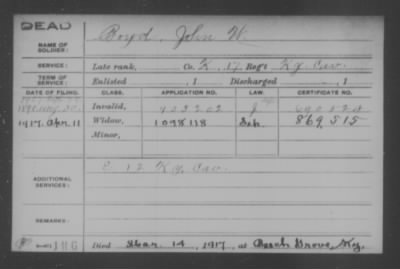 DEAD
NAME OF SOLDIER: Boyd, John W.
SERVICE: Late rank, Co. K, 17 Reg't Ky. Cav.
TERM OF SERVICE: Enlisted , 1 Discharged , 1
DATE OF FILING. CLASS. APPLICATION NO. LAW. CERTIFICATE NO.
Invalid, 903202
1917, Apr. 11 Widow, 1098118 Sep. 869,515
Minor,
ADDITIONAL SERVICES: E 12 Ky. Cav.
REMARKS:
Died Mar. 14, 1917, at Beech Grove, Ky.